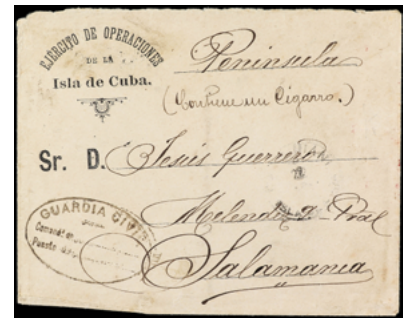 EJÉRCITO DE OPERACIONES
DE LA
Isla de Cuba.
Península
(Contiene un Cigarro.)
Sr. D. Jesús Guerrero
Melendez 2 Pral
Salamanca
GUARDIA CIVIL
Puesto de